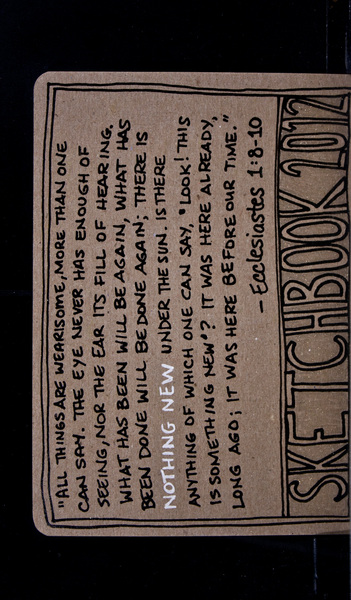 "ALL THINGS ARE WEARISOME, MORE THAN ONE
CAN SAY. THE EYE NEVER HAS ENOUGH OF
SEEING, NOR THE EAR ITS FILL OF HEARING,
WHAT HAS BEEN WILL BE AGAIN, WHAT HAS
BEEN DONE WILL BE DONE AGAIN; THERE IS
NOTHING NEW UNDER THE SUN. IS THERE
ANYTHING OF WHICH ONE CAN SAY, "LOOK! THIS
IS SOMETHING NEW"? IT WAS HERE ALREADY,
LONG AGO; IT WAS HERE BEFORE OUR TIME."
- Ecclesiastes 1:8-10
SKETCHBOOK 2012